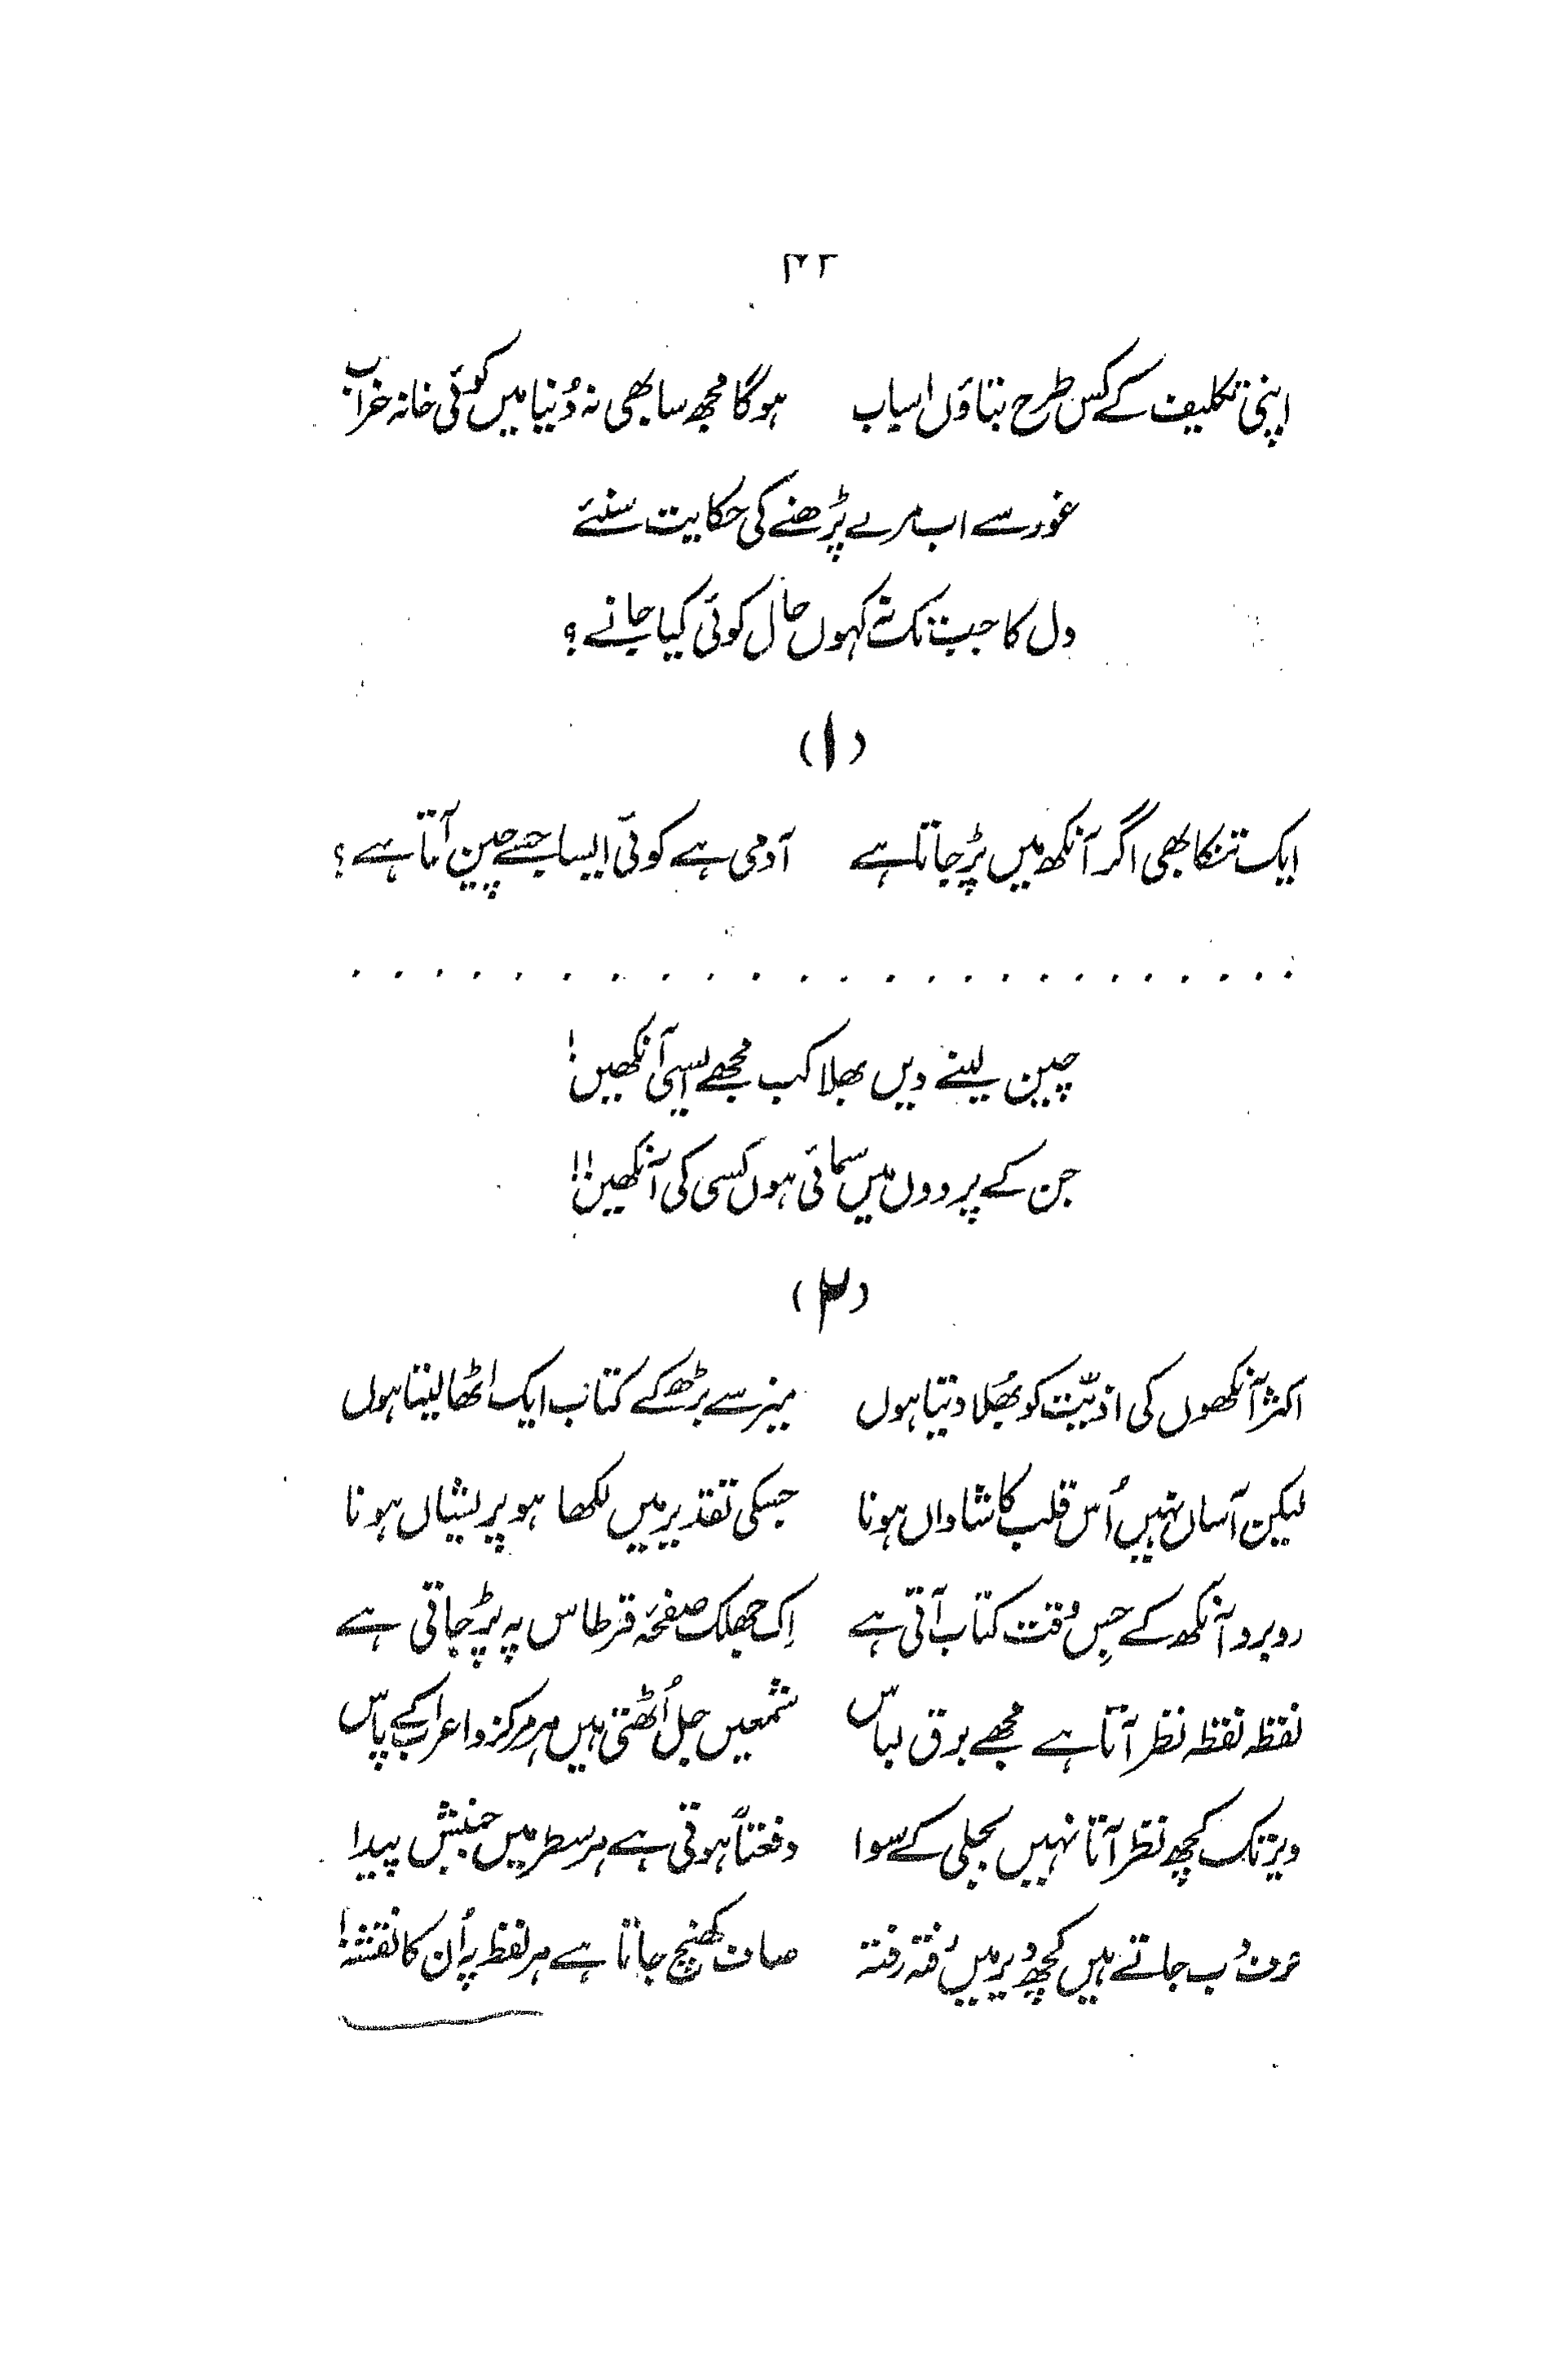 ۴۲
اپنی تکلیف کے کس طرح بتاؤں اسباب ہوگا مجھ سا بھی نہ دُنیا میں کوئی خانہ خراب
غور سے اب مرے پڑھنے کی حکایت سنئے
دل کا جب تک نہ کہوں حال کوئی کیا جانے؟
(۱)
ایک تنکا بھی اگر آنکھ میں پڑ جاتا ہے آدمی ہے کوئی ایسا جسے چین آتا ہے؟
. . . . . . . . . . . . . . . . . . . . . . . .
چین لینے دیں بھلا کب مجھے ایسی آنکھیں!
جن کے پردوں میں سمائی ہوں کسی کی آنکھیں!!
(۲)
اکثر آنکھوں کی اذیّت کو بھُلا دیتا ہوں میز سے بڑھ کے کتاب ایک اٹھا لیتا ہوں
لیکن آساں نہیں اُس قلب کا شاداں ہونا جسکی تقدیر میں لکھا ہو پریشاں ہونا
روبرو آنکھ کے جِس وقت کتاب آتی ہے اِک جھلک صفحۂ قرطاس پہ پڑ جاتی ہے
نقطہ نقطہ نظر آتا ہے مجھے برق لباس شمعیں جل اُٹھتی ہیں ہر مرکز و اعراب کے پاس
دیر تک کچھ نظر آتا نہیں بجلی کے سوا دفعتاً ہوتی ہے ہر سطر میں جنبش پیدا
حرف دُب جاتے ہیں کچھ دیر میں رفتہ رفتہ صاف کھنچ جاتا ہے ہر لفظ پہ اُن کا نقشہ!